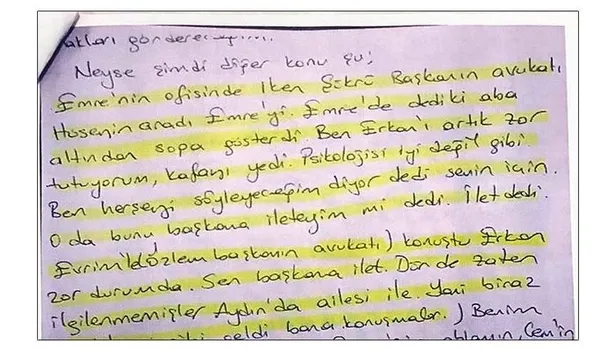 akları göndereceğim.
Neyse şimdi diğer konu şu;
Emre'nin ofisinde iken Şükrü Başkanın avukatı
Hüsenin aradı Emre'yi. Emre'de dediki aba
altından sopa gösterdi. Ben Erkan'ı artık zor
tutuyorum, kafayı yedi. Psikolojisi iyi değil gibi.
Ben herşeyi söyleyeceğim diyor dedi senin için.
O da bunu başkana ileteyim mi dedi. İlet dedi.
Evrim'ld(özlem başkanın avukatı) konuştu Erkan
zor durumda. Sen başkana ilet. Dün de zaten
ilgilenmemişler Aydın'da ailesi ile. Yani biraz
geldi bana konuşmalar.) Benim